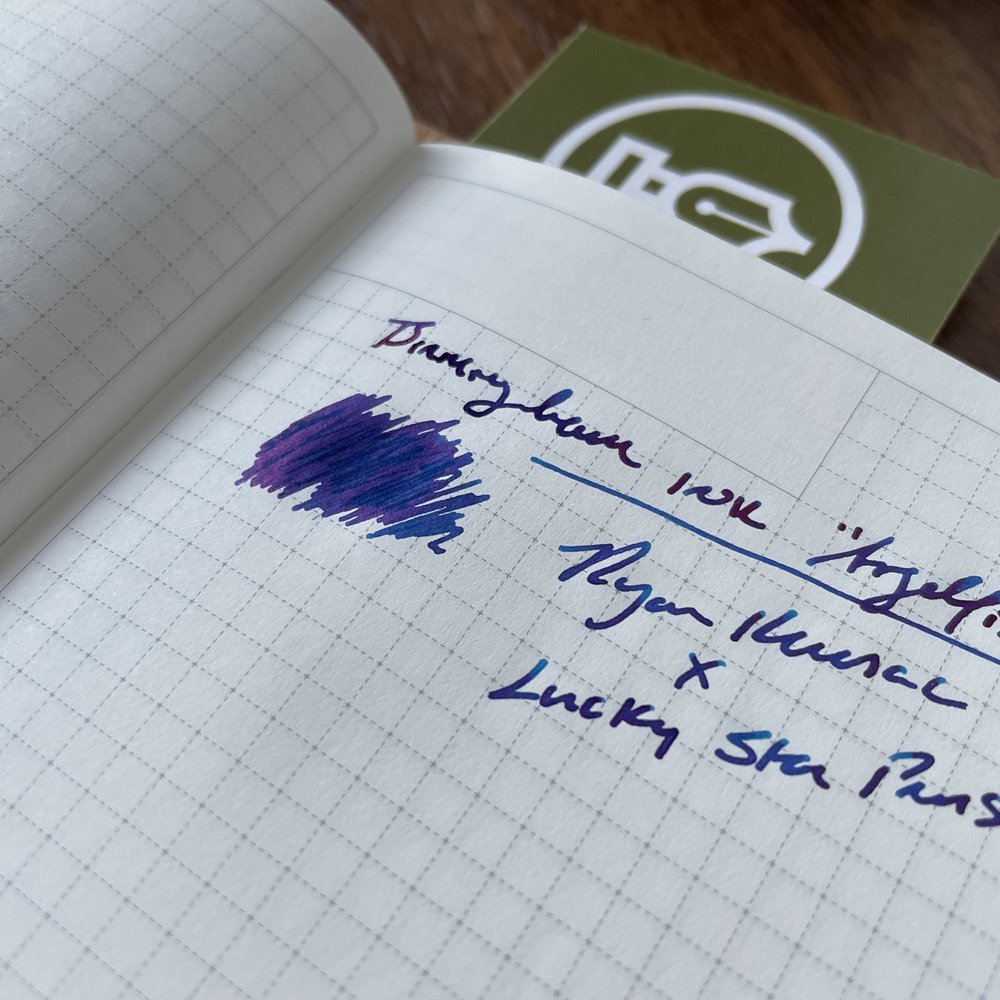 Birmingham INK "Angelfi
Ryan Krusac
X
Lucky Star Pens